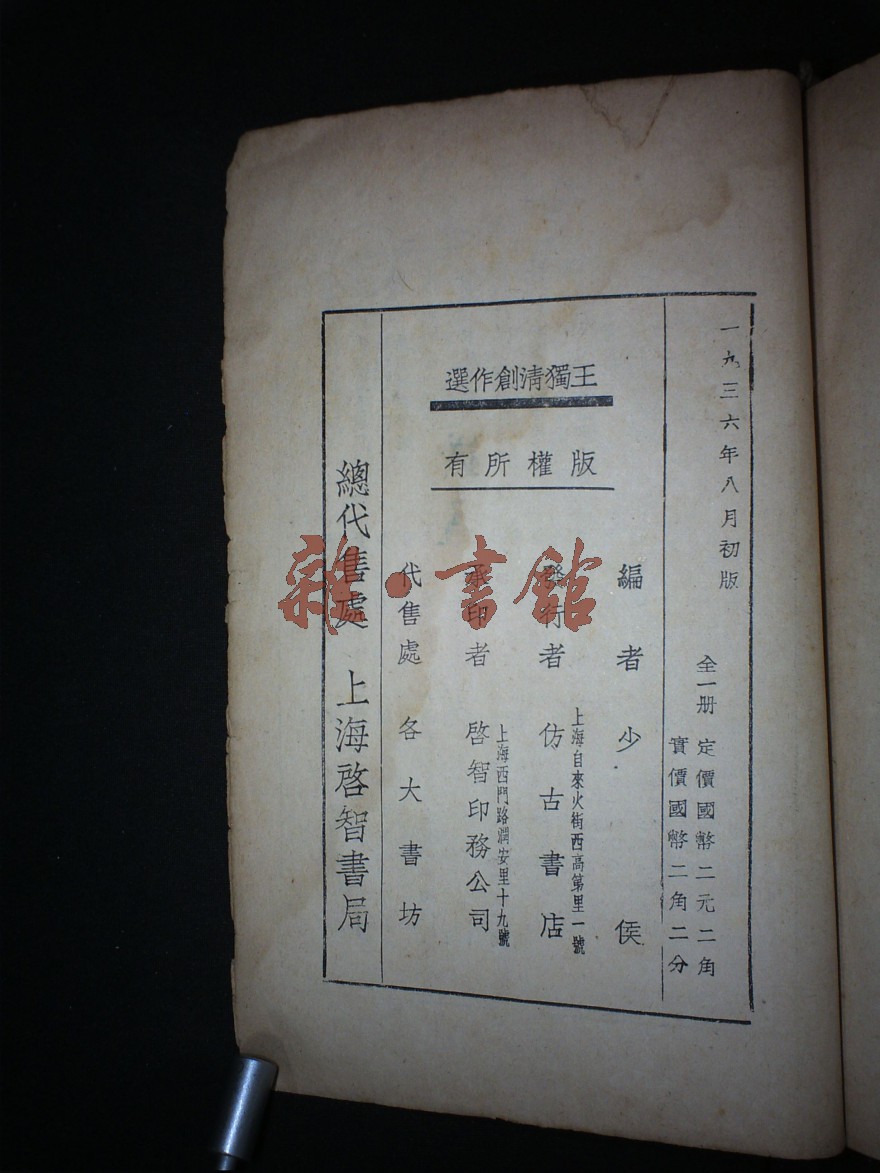 一九三六年八月初版
全一册 定價國幣二元二角
實價國幣二角二分
王獨清創作選
版權所有
編者 少侯
發行者 仿古書店
上海自來火街西高第里一號
承印者 啓智印務公司
上海西門路潤安里十九號
代售處 各大書坊
總代售處 上海啓智書局
雜·書館